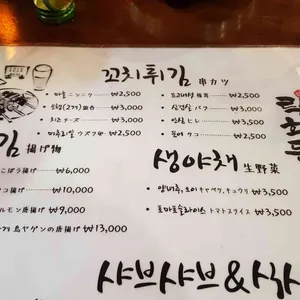 꼬치튀김 串カツ
• 마늘 ニンニク ₩2,500
• 은행(2개) 銀杏 ₩3,000
• 치즈 チーズ ₩3,000
• 메추리알 ウズラ卵 ₩2,500
₩2,500
₩3,000
• 안심 ヒレ ₩3,500
• 문어 タコ ₩2,500
김 揚げ物
ごぼう揚げ ₩6,000
タコ揚げ ₩10,000
ルモン揚げ ₩9,000
烏ヤゲンの唐揚げ ₩13,000
생야채 生野菜
• 양배추, 오이 キャベツ, キュウリ ₩3,500
• 토마토슬라이스 トマトスライス ₩3,500
샤브샤브 &